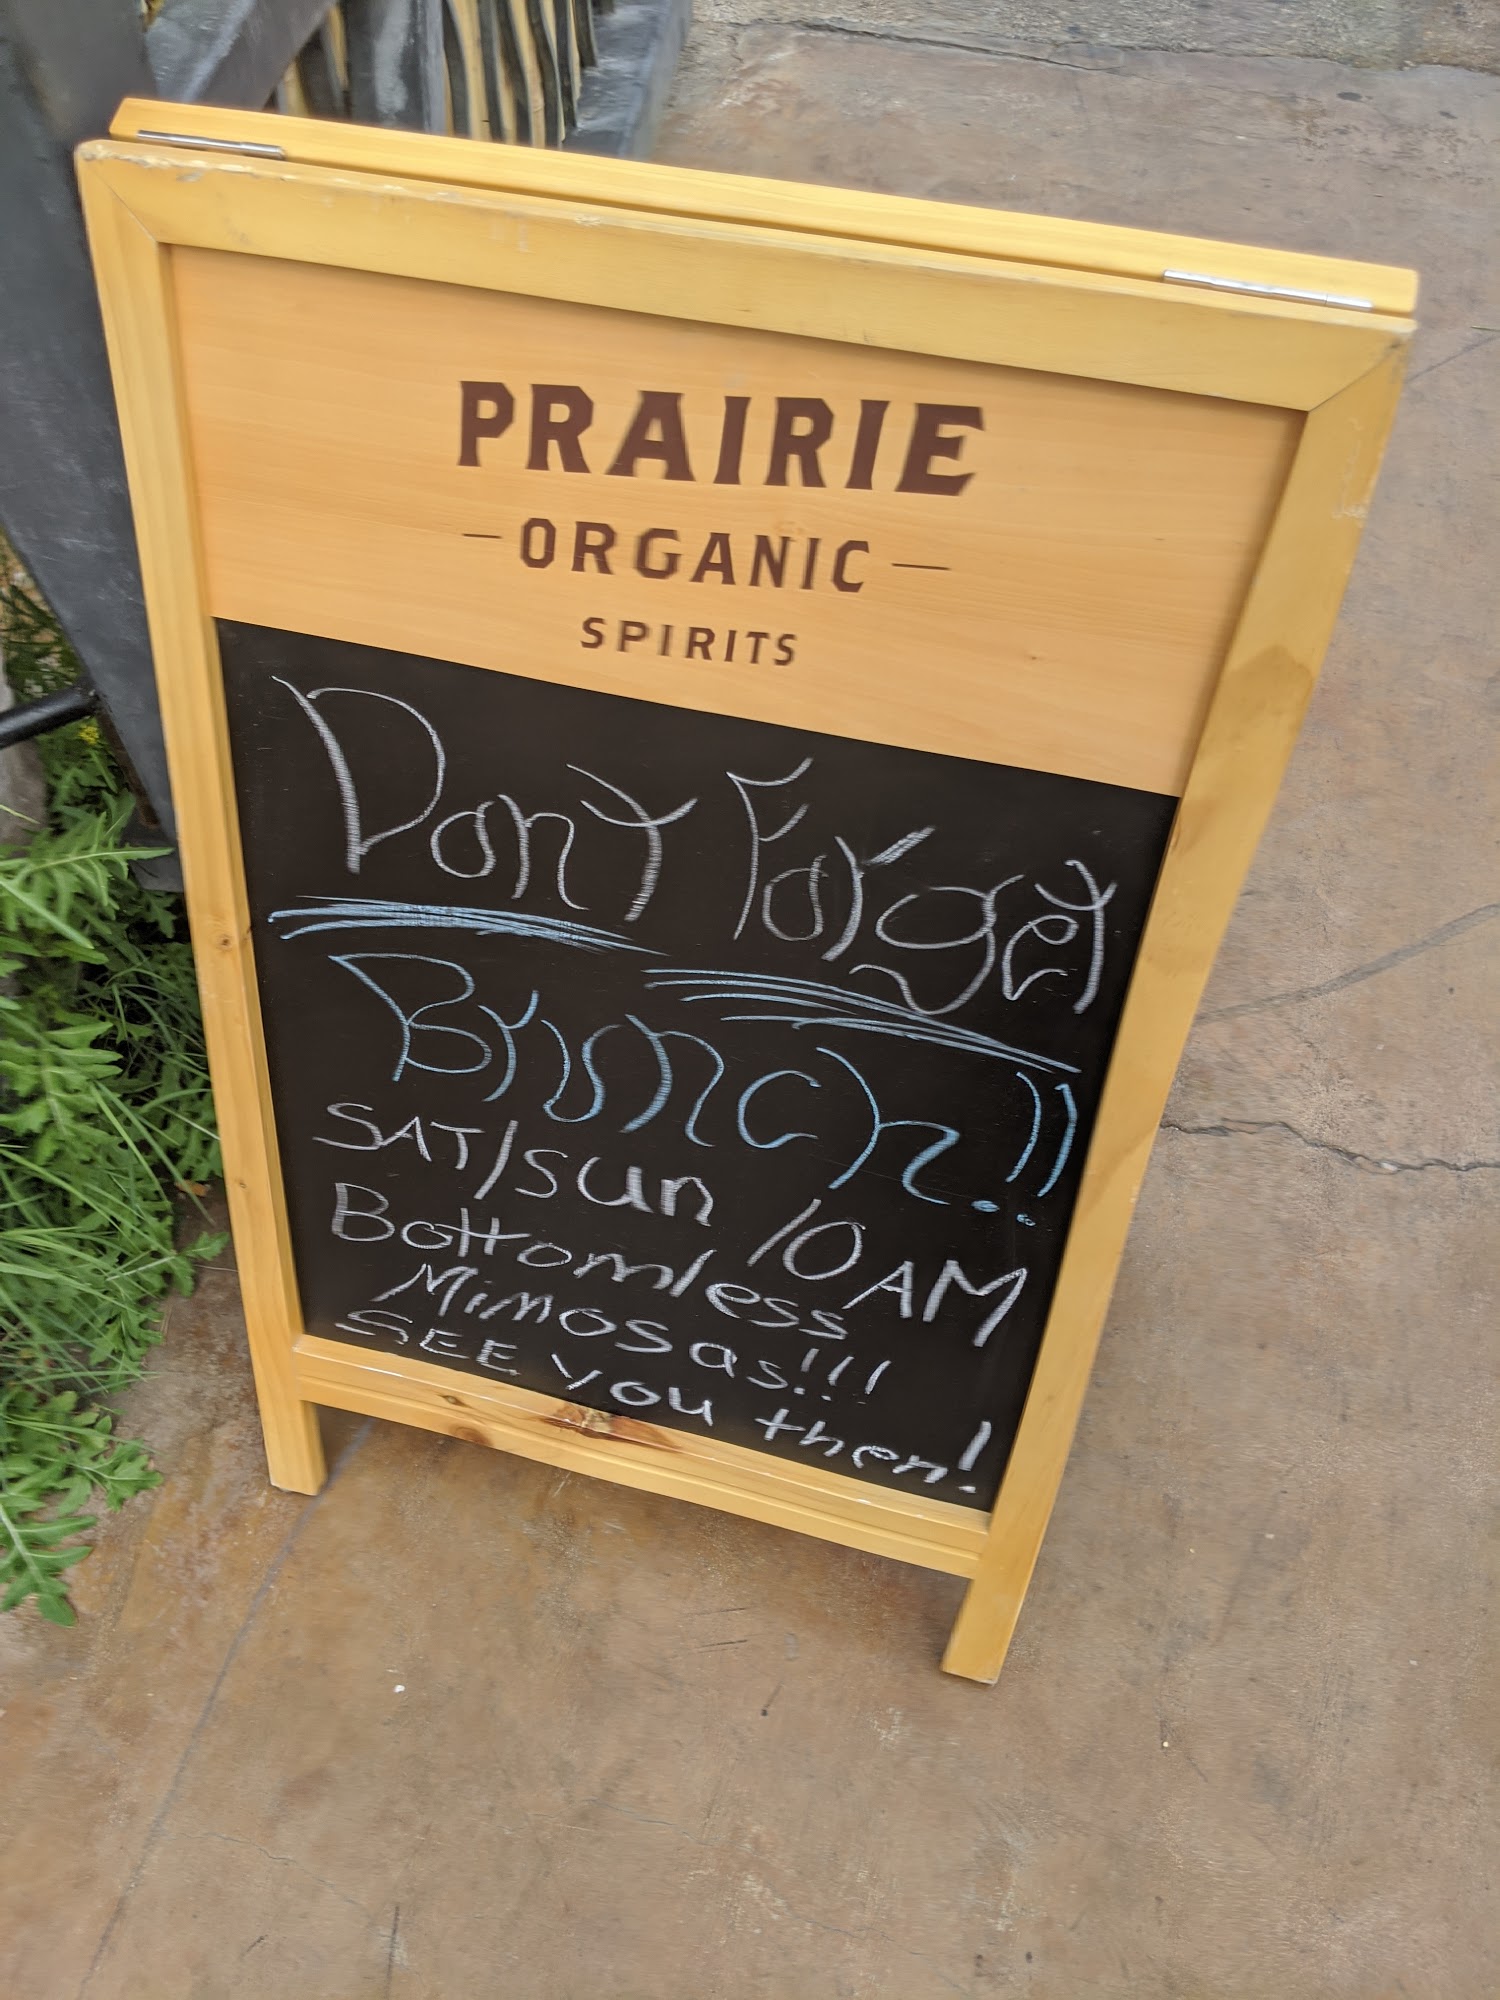 PRAIRIE
- ORGANIC -
SPIRITS
Dont Forget
Brunch!!
SAT/SUN 10 AM
Bottomless
Mimosas!!!
SEE you then!